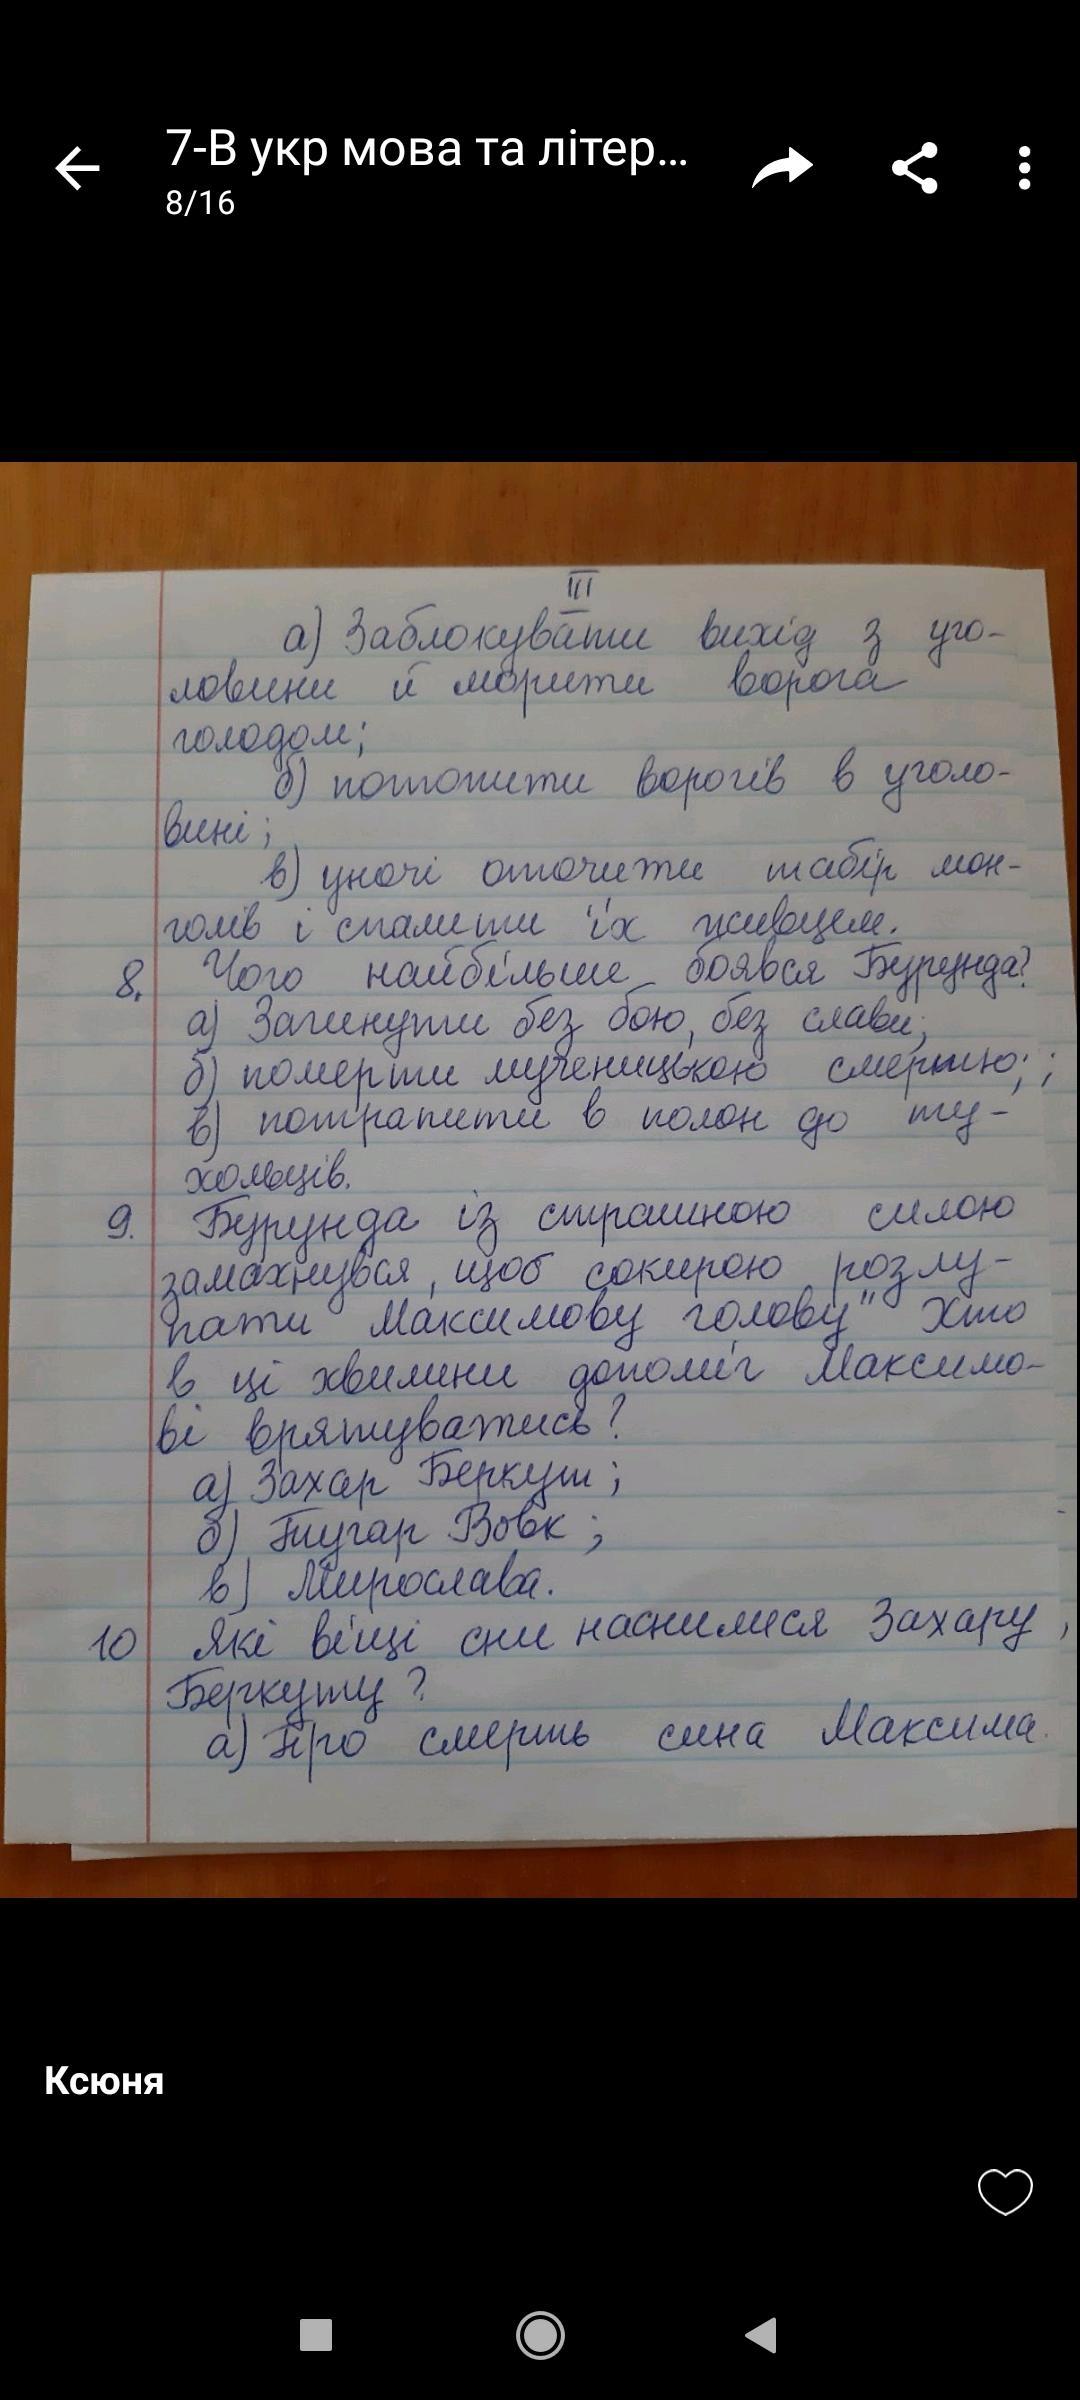 7-В укр мова та літер...
8/16
III
а) Заблокувати вихід з уго-
ловини й морити ворога
голодом;
б) потопити ворогів в уголо-
вині;
в) уночі оточити табір мон-
голів і спалити їх живцем.
8. Чого найбільше боявся Бурунда?
а) Загинути без бою, без слави;
б) померти мученицькою смертю; ;
в) потрапити в полон до ту-
хольців.
9. Бурунда із страшною силою
замахнувся, щоб сокирою розлу-
пати Максимову голову" Хто
в ці хвилини допоміг Максимо-
ві врятуватись?
а) Захар Беркут;
б) Тугар Вовк;
в) Мирослава.
10 Які віщі сни наснилися Захару
Беркуту?
а) Про смерть сина Максима.
Ксюня